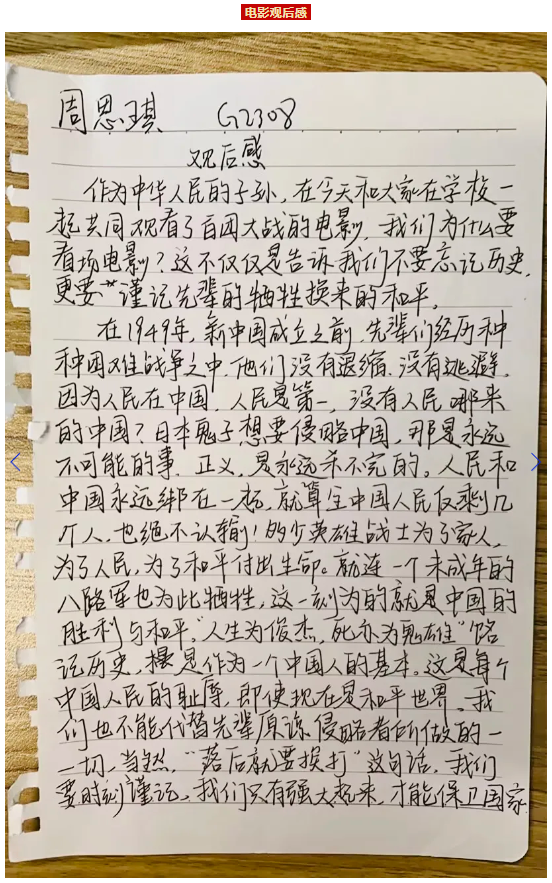 电影观后感
周思琪 G2308
观后感
作为中华人民的子孙,在今天和大家在学校一
起共同观看了百团大战的电影,我们为什么要
看场电影?这不仅仅是告诉我们不要忘记历史,
更要谨记先辈的牺牲换来的和平。
在1949年,新中国成立之前,先辈们经历种
种困难战争之中,他们没有退缩,没有逃避,
因为人民在中国,人民是第一,没有人民哪来
的中国?日本鬼子想要侵略中国,那是永远
不可能的事,正义,是永远杀不完的。人民和
中国永远绑在一起,就算全中国人民仅剩几
个人,也绝不认输!多少英雄战士为了家人,
为了人民,为了和平付出生命。就连一个未成年的
八路军也为此牺牲,这一刻为的就是中国的
胜利与和平,“人生为俊杰,死亦为鬼雄”铭
记历史,是作为一个中国人的基本,这是每个
中国人民的耻辱,即使现在是和平世界,我
们也不能代替先辈原谅侵略者所做的一
一切,当然,“落后就要挨打”这句话,我们
要时刻谨记,我们只有强大起来,才能保卫国家